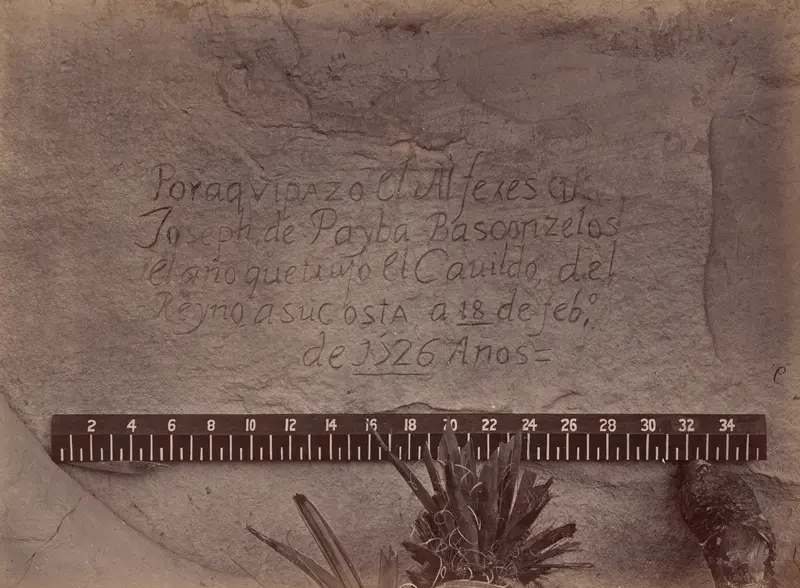 Por aqvi pazo el Alferes Dn
Joseph de Payba Basconzelos
el año que tujo el Cauildo del
Reyno a su costa a 18 de febo
de 1526 Años=
2 4 6 8 10 12 14 16 18 20 22 24 26 28 30 32 34